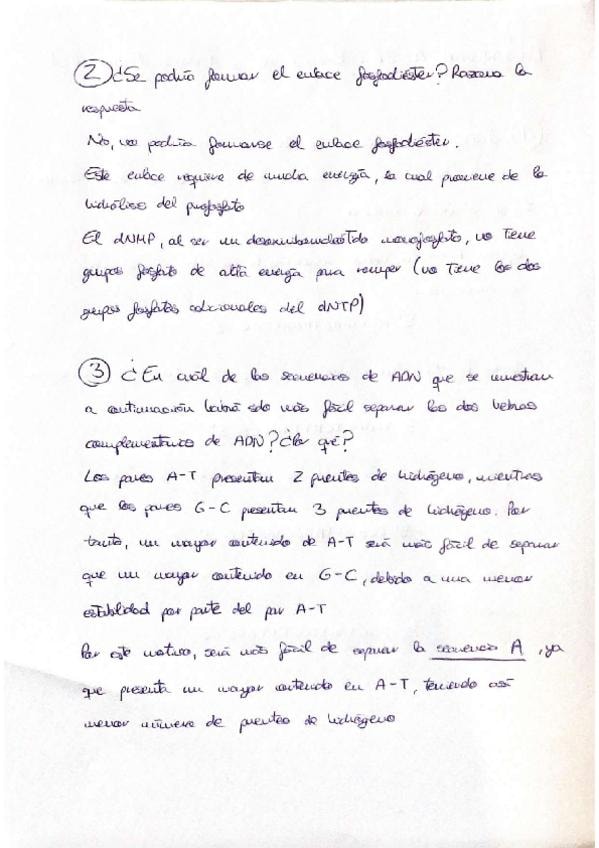 ② ¿Se podría formar el enlace fosfodiéster? Razona la
respuesta
No, no podría formarse el enlace fosfodiéster.
Este enlace requiere de mucha energía, la cual proviene de la
hidrólisis del pirofosfato
El dNMP, al ser un desoxirribonucleótido monofosfato, no tiene
grupos fosfato de alta energía para romper (no tiene los dos
grupos fosfatos adicionales del dNTP)
③ ¿En cuál de las secuencias de ADN que se muestran
a continuación habrá sido más fácil separar las dos hebras
complementarias de ADN? ¿Por qué?
Los pares A-T presentan 2 puentes de hidrógeno, mientras
que los pares G-C presentan 3 puentes de hidrógeno. Por
tanto, un mayor contenido de A-T será más fácil de separar
que un mayor contenido en G-C, debido a una menor
estabilidad por parte del par A-T
Por este motivo, será más fácil de separar la secuencia A, ya
que presenta un mayor contenido en A-T, teniendo así
menor número de puentes de hidrógeno